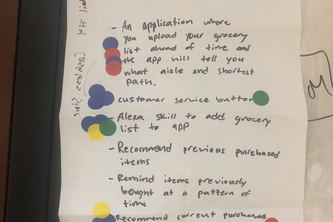 - An application where
you upload your grocery
list ahead of time and
the app will tell you
what aisle and shortest
path.
customer service button
- Alexa skill to add grocery
list to app
- Recommend previous purchased
items
- Remind items previously
bought at a pattern of
time
Recommend current purchased
M